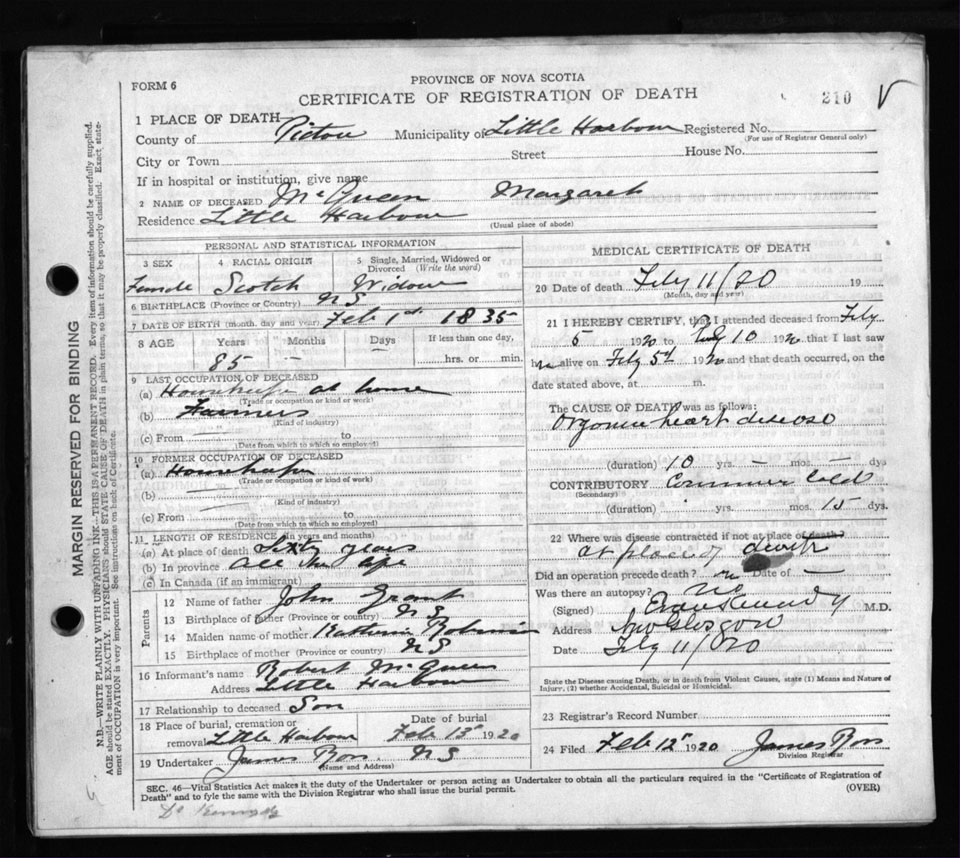 PROVINCE OF NOVA SCOTIA
FORM 6
CERTIFICATE OF REGISTRATION OF DEATH
210 V
1 PLACE OF DEATH
County of Pictou Municipality of Little Harbour Registered No.
(For use of Registrar General only)
City or Town Street House No.
If in hospital or institution, give name
2 NAME OF DECEASED McQueen Margaret
Residence Little Harbour
(Usual place of abode)
PERSONAL AND STATISTICAL INFORMATION
3 SEX 4 RACIAL ORIGIN 5 Single, Married, Widowed or Divorced (Write the word)
Female Scotch Widow
6 BIRTHPLACE (Province or Country) N S
7 DATE OF BIRTH (month, day and year) Feb 1st 1835
8 AGE Years Months Days If less than one day,
85 — — hrs. or min.
9 LAST OCCUPATION OF DECEASED
(a) at home
(Trade or occupation or kind or work)
(b) Farmers
(Kind of industry)
(c) From to
(Date from which to which so employed)
10 FORMER OCCUPATION OF DECEASED
(a) Housekeeper
(Trade or occupation or kind of work)
(b) —
(Kind of industry)
(c) From — to
(Date from which to which so employed)
11 LENGTH OF RESIDENCE (in years and months)
(a) At place of death Sixty years
(b) In province all her life
(c) In Canada (if an immigrant)
Parents
12 Name of father John Grant
13 Birthplace of father (Province or country) N S
14 Maiden name of mother
15 Birthplace of mother (Province or country) N S
16 Informant's name Robert McQueen
Address Little Harbour
17 Relationship to deceased Son
18 Place of burial, cremation or removal Little Harbour
Date of burial Feb 13th 1920
19 Undertaker James Ross N S
(Name and Address)
MEDICAL CERTIFICATE OF DEATH
20 Date of death Feby 11/20 19
(Month, day and year)
21 I HEREBY CERTIFY, that I attended deceased from Feby
5 1920 to Feby 10 1920 that I last saw
h alive on Feby 5th 1920 and that death occurred, on the
date stated above, at m.
The CAUSE OF DEATH was as follows:
Organic heart disease
(duration) 10 yrs. — mos. — dys
CONTRIBUTORY Common Cold
(Secondary)
(duration) yrs. mos. 15 dys.
22 Where was disease contracted if not at place of death?
at place of death
Did an operation precede death? no Date of —
Was there an autopsy? No
(Signed) Evan Kennedy M.D.
Address New Glasgow
Date Feby 11/20
State the Disease causing Death, or in death from Violent Causes, state (1) Means and Nature of
Injury, (2) whether Accidental, Suicidal or Homicidal.
23 Registrar's Record Number
24 Filed Feb 12th 1920 James Ross
Division Registrar
SEC. 46—Vital Statistics Act makes it the duty of the Undertaker or person acting as Undertaker to obtain all the particulars required in the "Certificate of Registration of
Death" and to fyle the same with the Division Registrar who shall issue the burial permit.
(OVER)
Dr Kennedy
MARGIN RESERVED FOR BINDING
N.B.—WRITE PLAINLY WITH UNFADING INK—THIS IS A PERMANENT RECORD. Every item of information should be carefully supplied.
AGE should be stated EXACTLY. PHYSICIANS should STATE CAUSE OF DEATH in plain terms, so that it may be properly classified. Exact statement of OCCUPATION is very important. See instructions on back of Certificate.